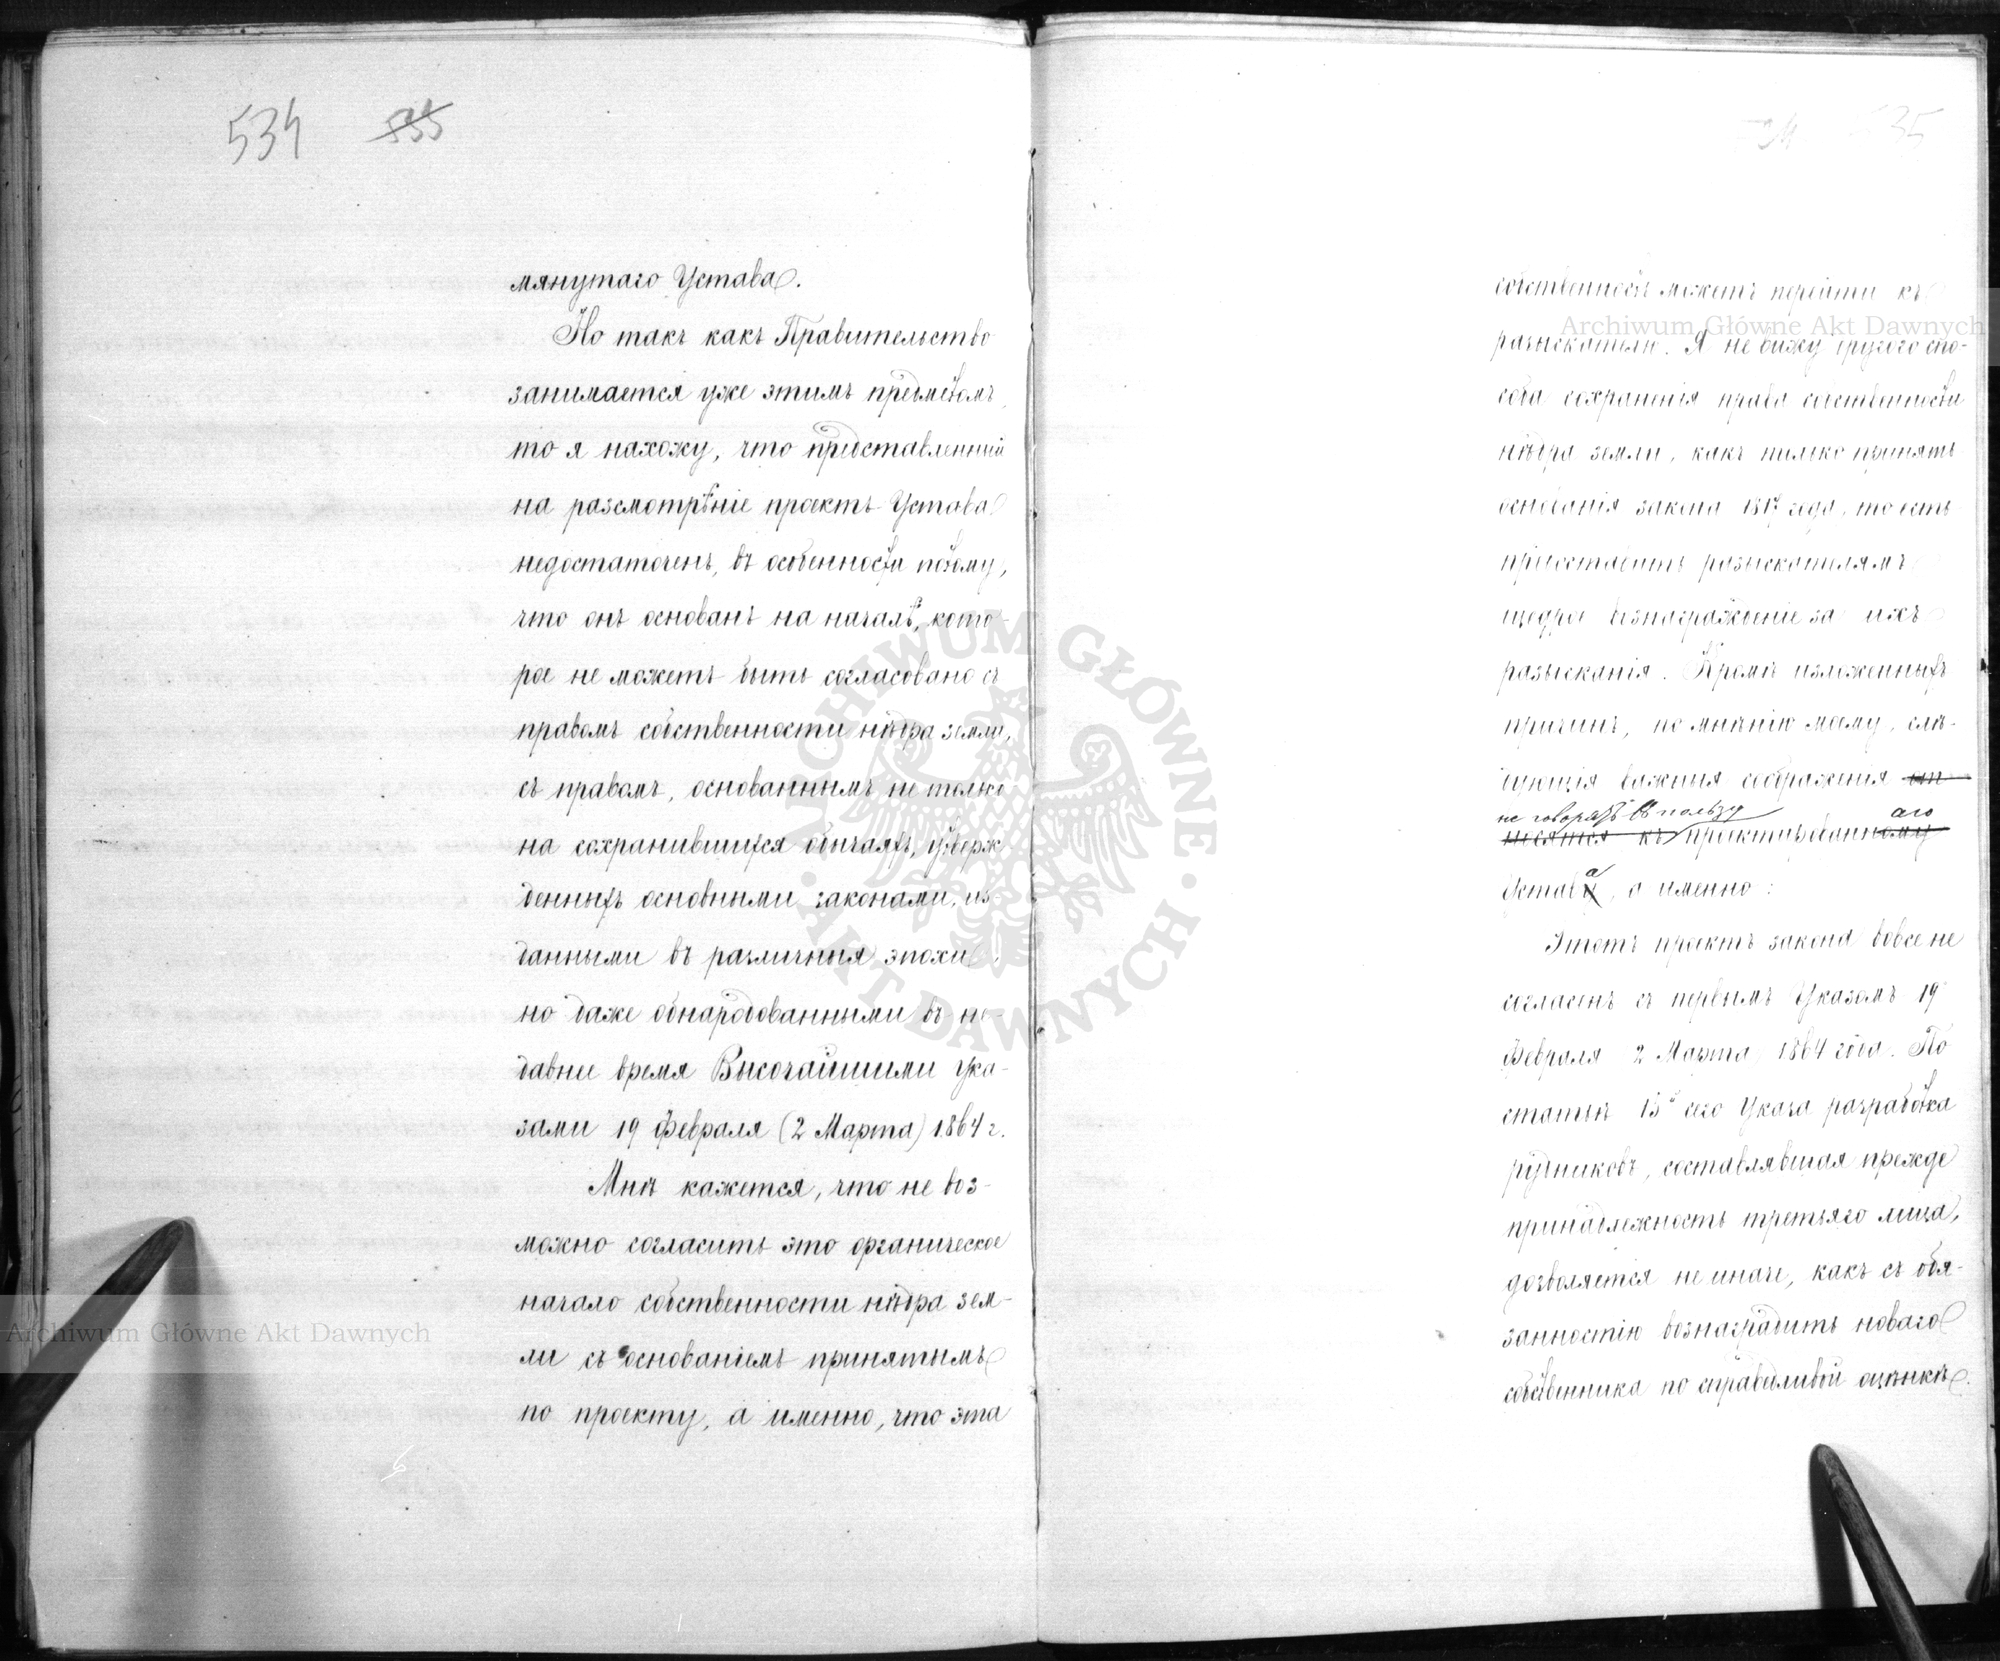 534 535
мянутаго Устава.
Но такъ какъ Правительство
занимается уже этимъ предметомъ,
то я нахожу, что представленный
на разсмотрѣніе проектъ Устава
недостаточенъ, въ особенности потому,
что онъ основанъ на началѣ, кото-
рое не можетъ быть согласовано съ
правомъ собственности нѣдра земли,
съ правомъ, основаннымъ не только
на сохранившихся обычаяхъ, утверж-
денныхъ основными законами, из-
данными въ различныя эпохи,
но даже обнародованными въ не-
давнее время Высочайшими Ука-
зами 19 Февраля (2 Марта) 1864 г.
Мнѣ кажется, что не воз-
можно согласить это органическое
начало собственности нѣдра зем-
ли съ основаніемъ принятымъ
по проекту, а именно, что эта
535
собственность можетъ перейти къ
разыскателю. Я не вижу другого спо-
соба сохраненія права собственности
нѣдра земли, какъ только принять
основанія закона 1817 года, то есть
предоставить разыскателямъ
щедрое вознагражденіе за ихъ
разысканія. Кромѣ изложенныхъ
причинъ, по мнѣнію моему, слѣ-
дующія важныя соображенія от-
не говорятъ въ пользу аго
носятся къ проектированному
Устава, а именно:
Этотъ проектъ закона вовсе не
согласенъ съ первымъ Указомъ 19
Февраля 2 Марта 1864 года. По
статьѣ 15й сего Указа разработка
рудниковъ, составлявшая прежде
принадлежность третьяго лица,
дозволяется не иначе, какъ съ обя-
занностію вознаградить новаго
собственника по справедливой оцѣнкѣ.
Archiwum Główne Akt Dawnych
Archiwum Główne Akt Dawnych
ARCHIWUM GŁÓWNE AKT DAWNYCH